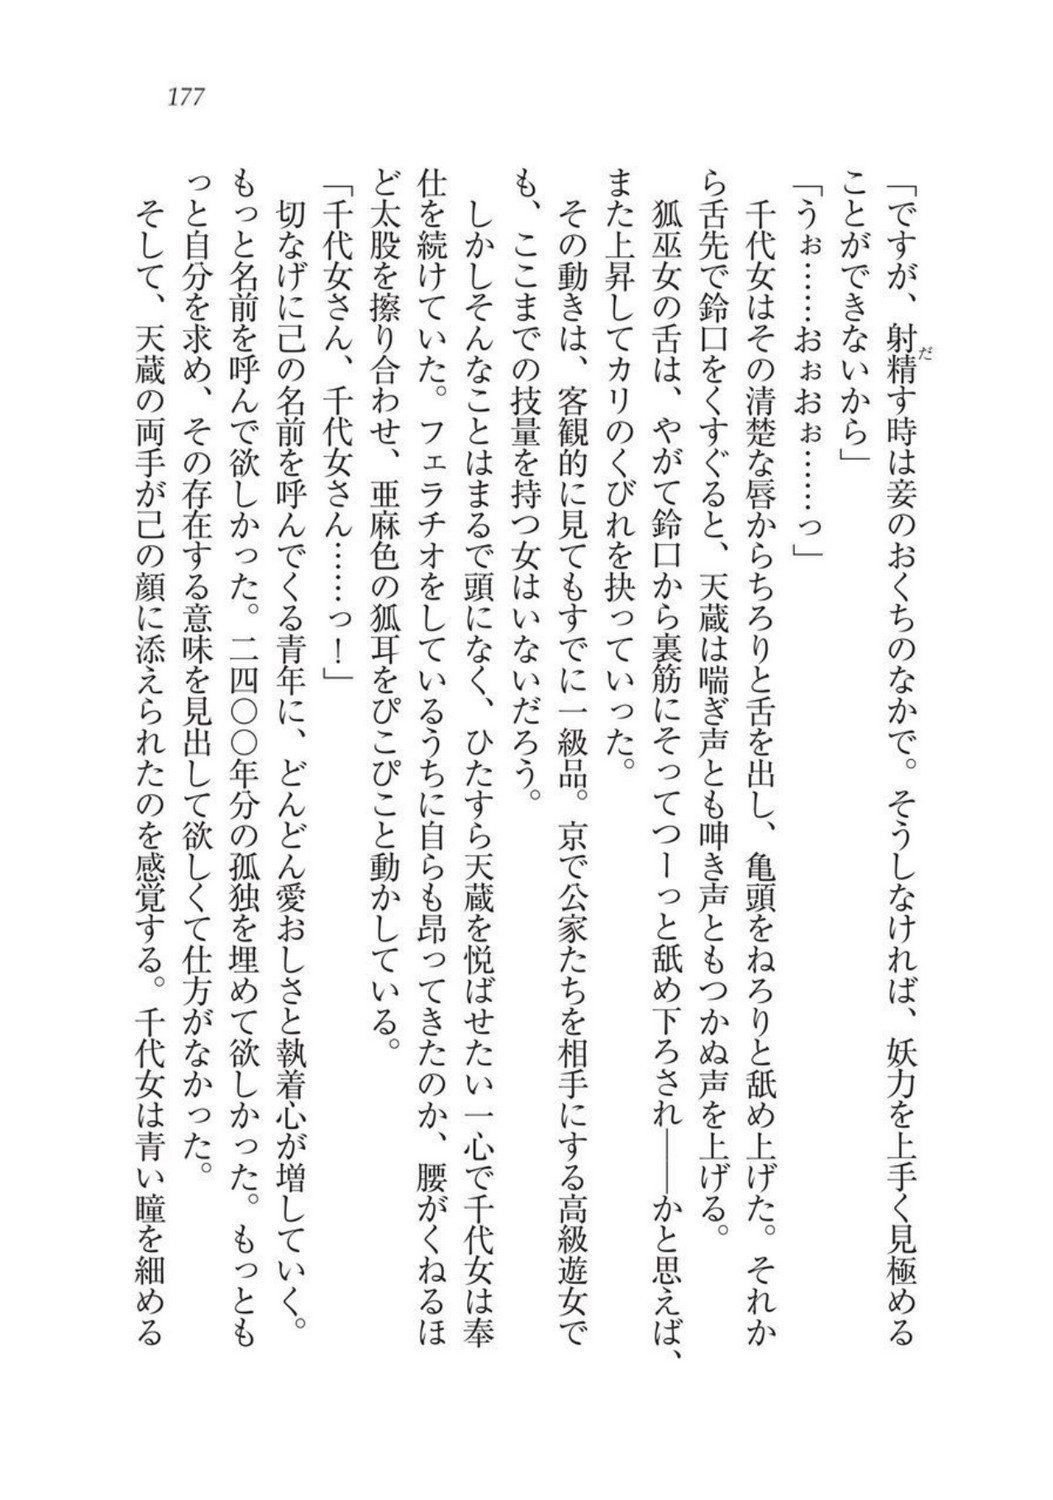 177
「ですが、射精す時は妾のおくちのなかで。そうしなければ、妖力を上手く見極める
ことができないから」
「うぉ……おぉおぉ……っ」
千代女はその清楚な唇からちろりと舌を出し、亀頭をねろりと舐め上げた。それか
ら舌先で鈴口をくすぐると、天蔵は喘ぎ声とも呻き声ともつかぬ声を上げる。
狐巫女の舌は、やがて鈴口から裏筋にそってつーっと舐め下ろされ――かと思えば、
また上昇してカリのくびれを抉っていった。
その動きは、客観的に見てもすでに一級品。京で公家たちを相手にする高級遊女で
も、ここまでの技量を持つ女はいないだろう。
しかしそんなことはまるで頭になく、ひたすら天蔵を悦ばせたい一心で千代女は奉
仕を続けていた。フェラチオをしているうちに自らも昂ってきたのか、腰がくねるほ
ど太股を擦り合わせ、亜麻色の狐耳をぴこぴこと動かしている。
「千代女さん、千代女さん……っ！」
切なげに己の名前を呼んでくる青年に、どんどん愛おしさと執着心が増していく。
もっと名前を呼んで欲しかった。二四〇〇年分の孤独を埋めて欲しかった。もっとも
っと自分を求め、その存在する意味を見出して欲しくて仕方がなかった。
そして、天蔵の両手が己の顔に添えられたのを感覚する。千代女は青い瞳を細める
だ